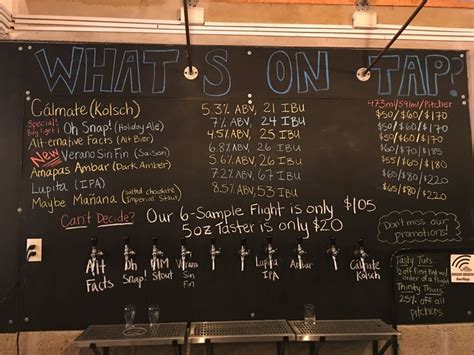 WHAT'S ON TAP?
473ml/591ml/Pitcher
Cálmate (Kolsch) 5.3% ABV, 21 IBU $50/$60/$170
Special! Buy 1 get 1 Oh Snap! (Holiday Ale) 7% ABV, 24 IBU $50/$60/$170
Alternative Facts (Alt Bier) 4.5% ABV, 35 IBU
New Verano Sin Fin (Saison) 6.8% ABV, 26 IBU
Amapas Ambar (Dark Amber) 5.6% ABV, 26 IBU
Lupita (IPA) 7.2% ABV, 67 IBU
Maybe Mañana (Salted Chocolate Imperial Stout) 8.5% ABV, 53 IBU $65/$80/$220
Can't Decide? Our 6-Sample Flight is only $105
5oz Taster is only $20
Don't miss our promotions!
Alt Facts
Oh Snap!
MM Stout
Verano Sin Fin
Lupita IPA
Ambar
Cálmate Kolsch
Tasty Tues:
2 off first Beer w/
order of a flight
Thirsty Thurs:
25% off all
pitchers